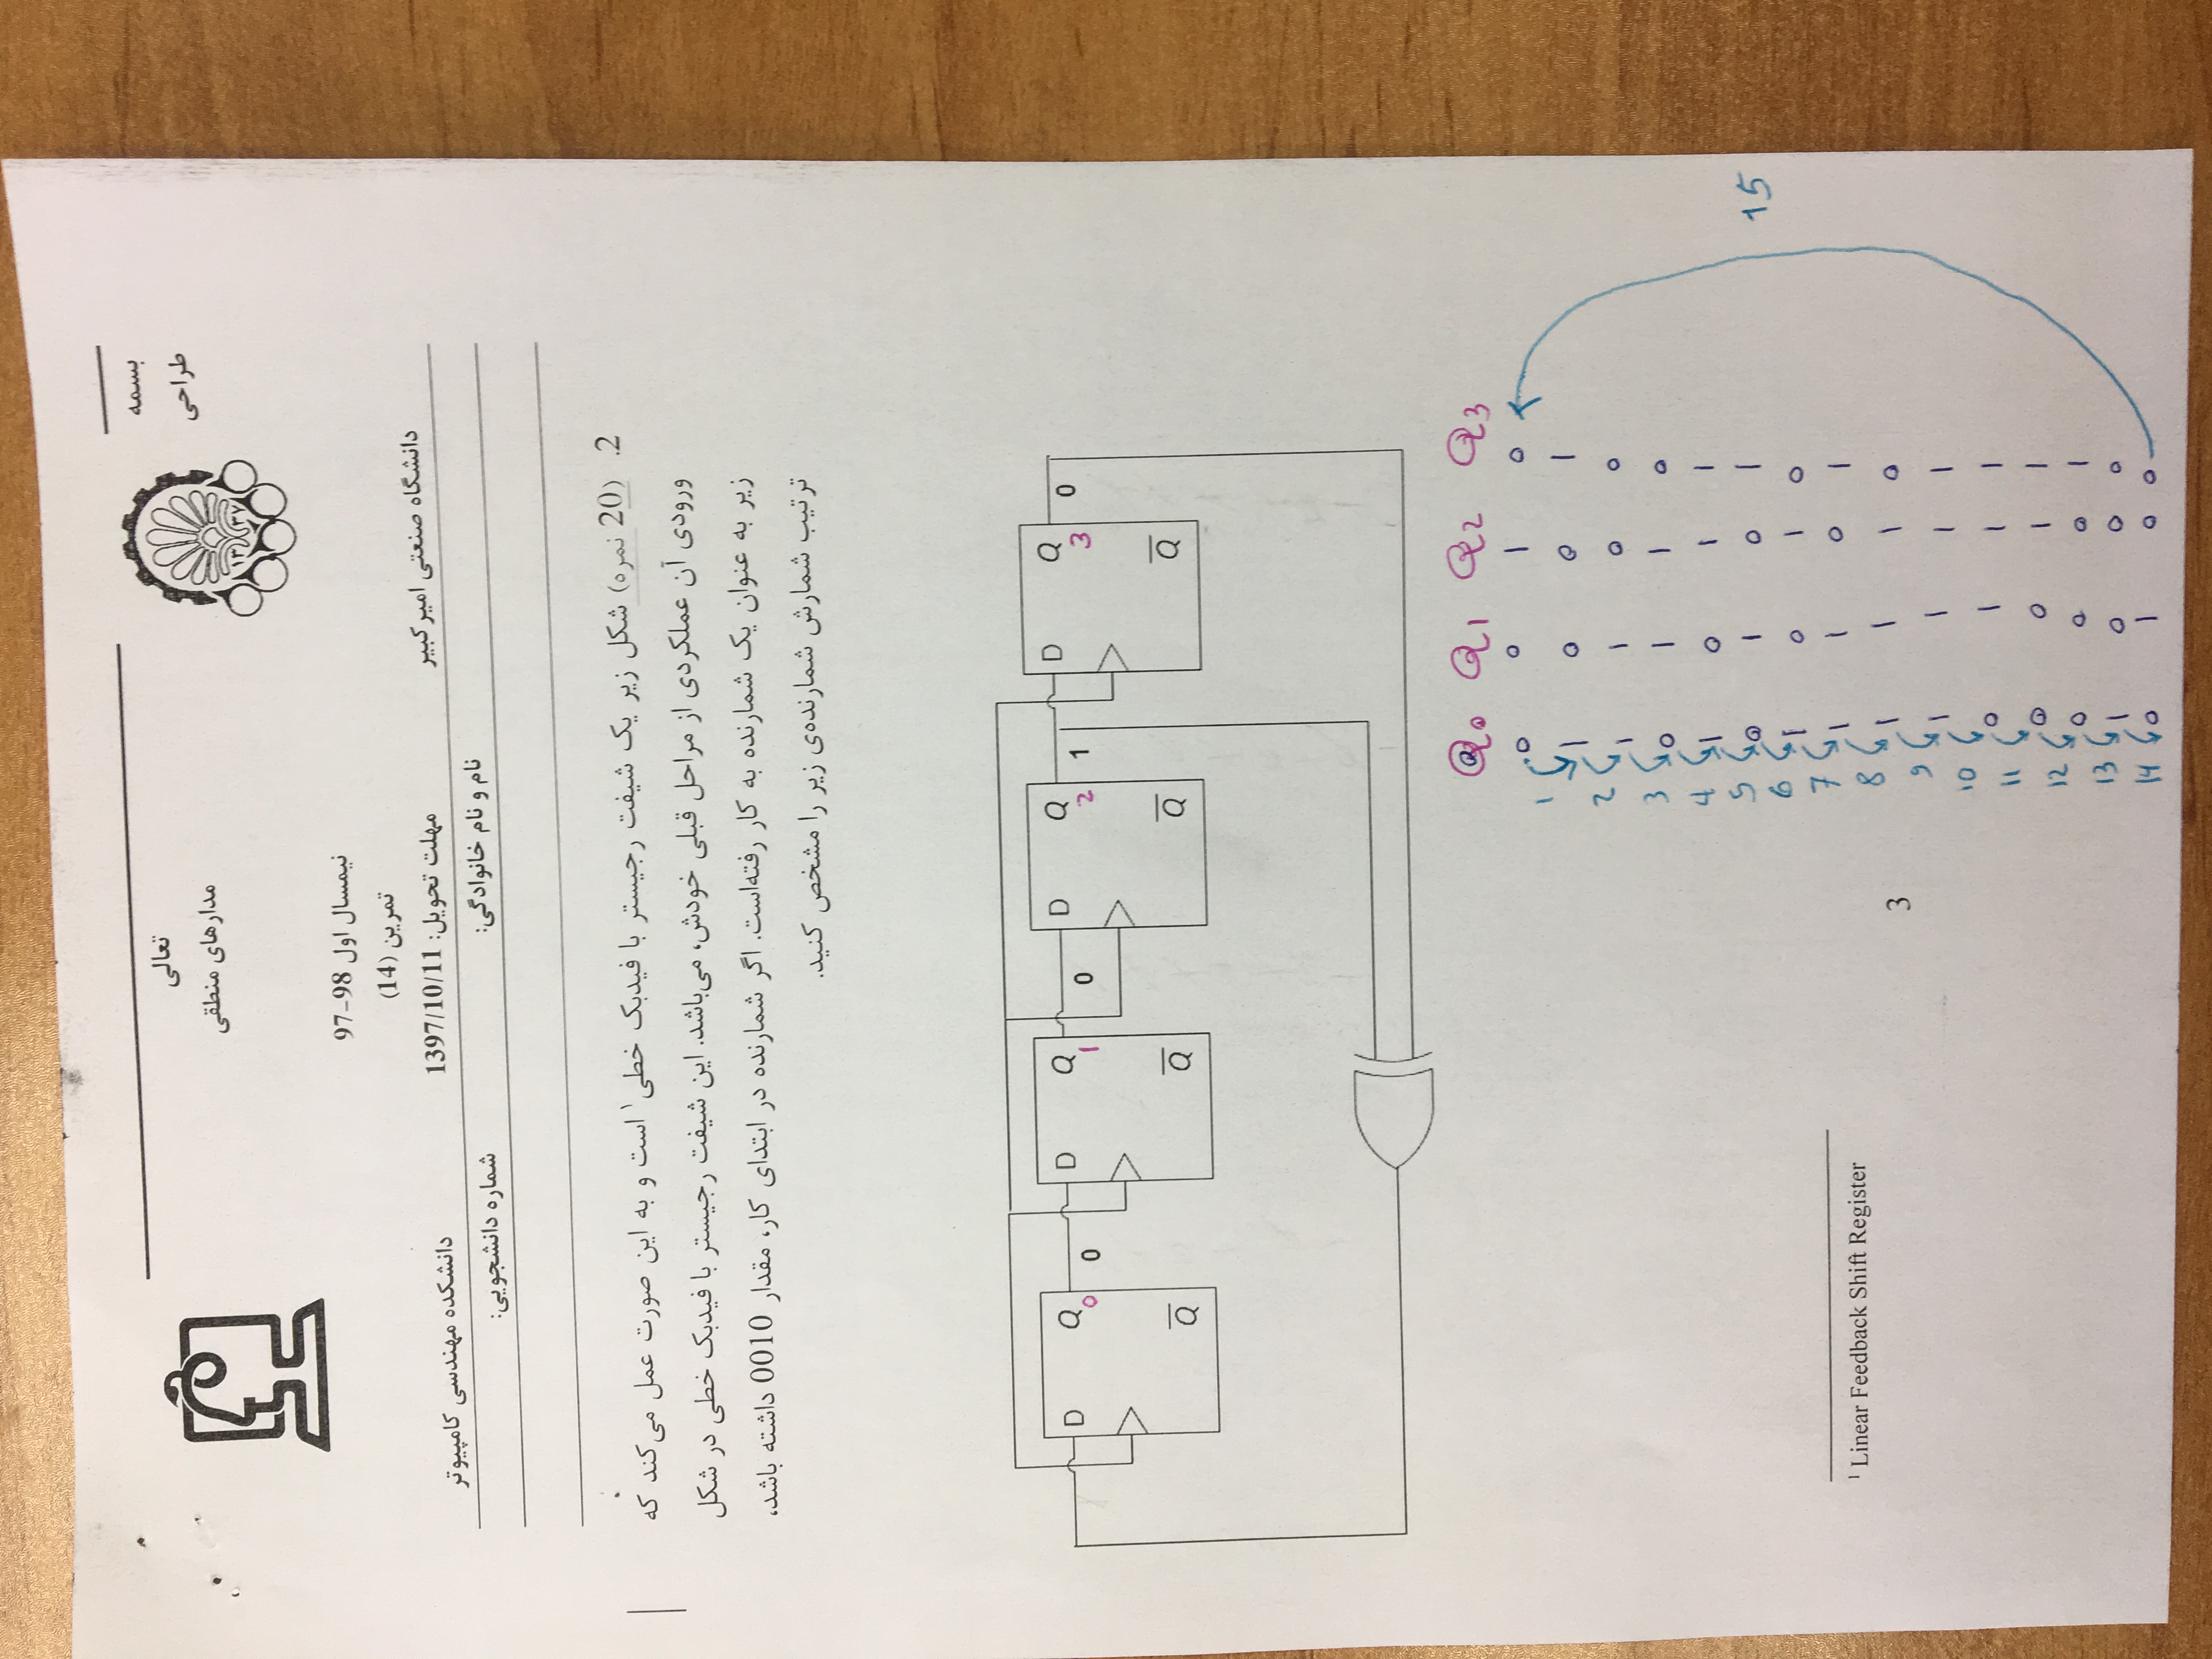 بسمه
تعالی
طراحی
مدارهای منطقی
۱۳ ۳۷
نیمسال اول 98-97
تمرین (14)
دانشگاه صنعتی امیرکبیر
مهلت تحویل: 1397/10/11
دانشکده مهندسی کامپیوتر
نام و نام خانوادگی:
شماره دانشجویی:
2. (20 نمره) شکل زیر یک شیفت رجیستر با فیدبک خطی۱ است و به این صورت عمل می‌کند که
ورودی آن عملکردی از مراحل قبلی خودش، می‌باشد. این شیفت رجیستر با فیدبک خطی در شکل
زیر به عنوان یک شمارنده به کار رفته‌است. اگر شمارنده در ابتدای کار، مقدار 0010 داشته باشد،
ترتیب شمارش شمارنده‌ی زیر را مشخص کنید.
D Q 0 0 D Q 1 0 D Q 2 1 D Q 3 0
Q̅ Q̅ Q̅ Q̅
Q0 Q1 Q2 Q3
0 0 1 0
1 1 0 0 1
2 1 1 0 0
3 0 1 1 0
4 1 0 1 1
5 0 1 0 1
6 1 0 1 0
7 1 1 0 1
8 1 1 1 0
9 1 1 1 1
10 0 1 1 1
11 0 0 1 1
12 0 0 0 1
13 1 0 0 0
14 0 1 0 0
15
1 Linear Feedback Shift Register
3